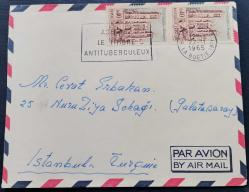 LE TIMBRE
ANTITUBERCULEUX
1965
LA BOETIE
Mr. Cevat Erbakan
25 NuruZiya Sokağı (Galatasaray)
Istanbul Turquie
PAR AVION
BY AIR MAIL